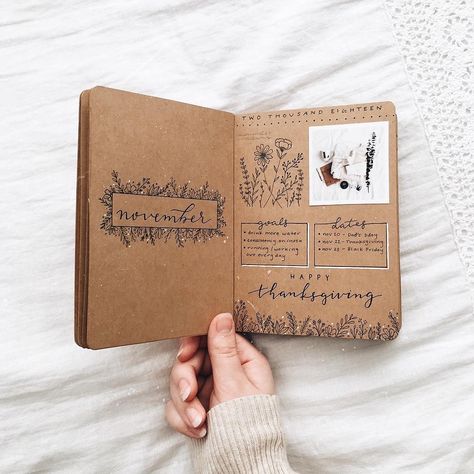 november
TWO THOUSAND EIGHTEEN
goals
• drink more water
• running / working
out everyday
dates
• nov 20 - Dad's bday
• nov 22 - Thanksgiving
• nov 23 - Black Friday
HAPPY
thanksgiving